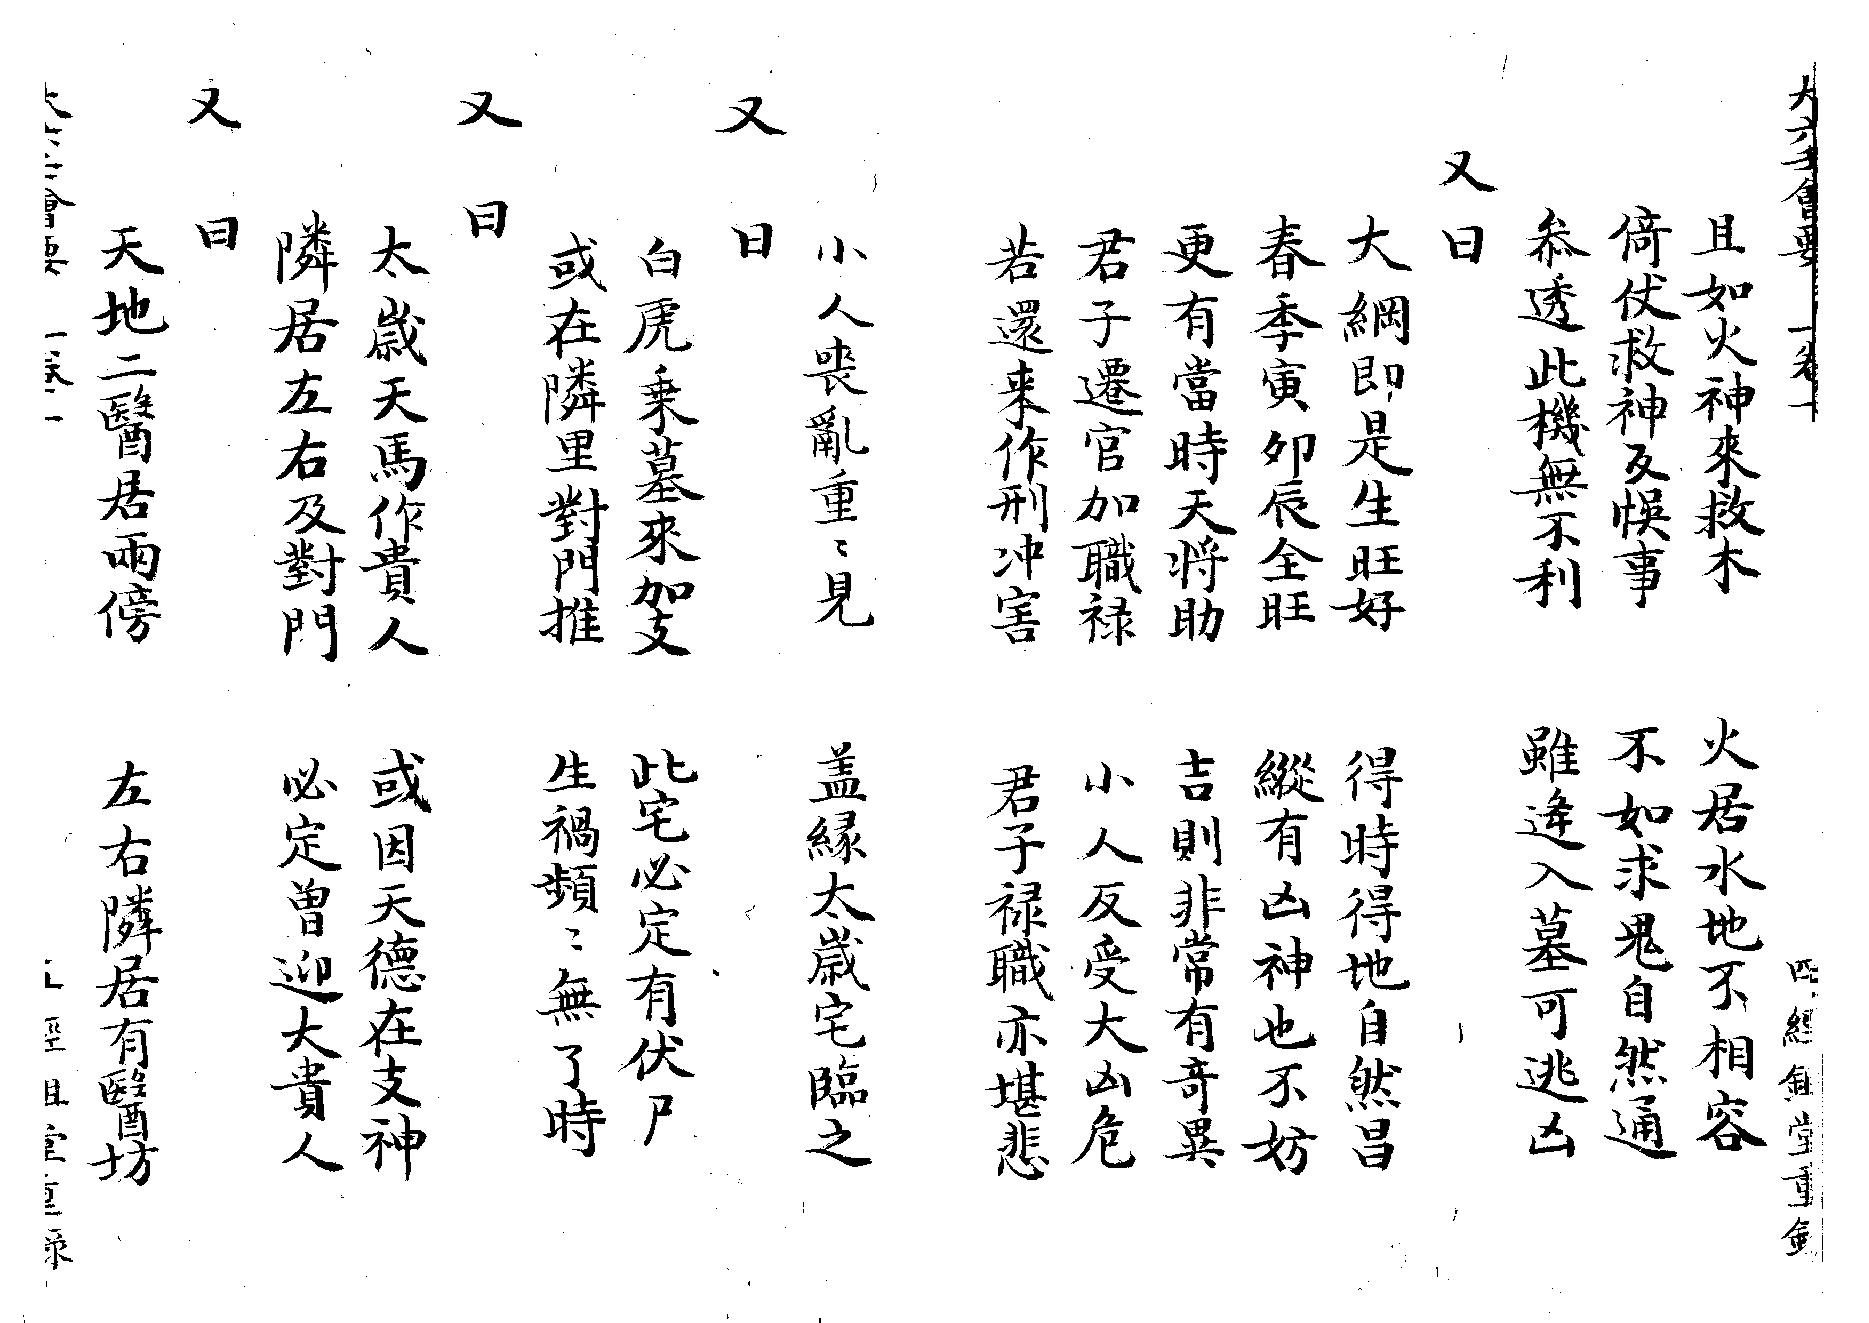 大六壬會要 卷一
且如火神來救木 火居水地不相容
倚仗救神反悞事 不如求鬼自然通
叅透此機無不利 雖逢入墓可逃凶
又曰
大綱即是生旺好 得時得地自然昌
春季寅卯辰全旺 縱有凶神也不妨
更有當時天将助 吉則非常有竒異
君子遷官加職禄 小人反受大凶危
若還来作刑冲害 君子禄職亦堪悲
小人丧亂重〻見 盖緣太歲宅臨之
又曰
白虎乗墓來加支 此宅必定有伏尸
或在隣里對門推 生禍頻〻無了時
又曰
太歲天馬作貴人 或因天德在支神
隣居左右及對門 必定曽迎大貴人
又曰
天地二醫居兩傍 左右隣居有醫坊